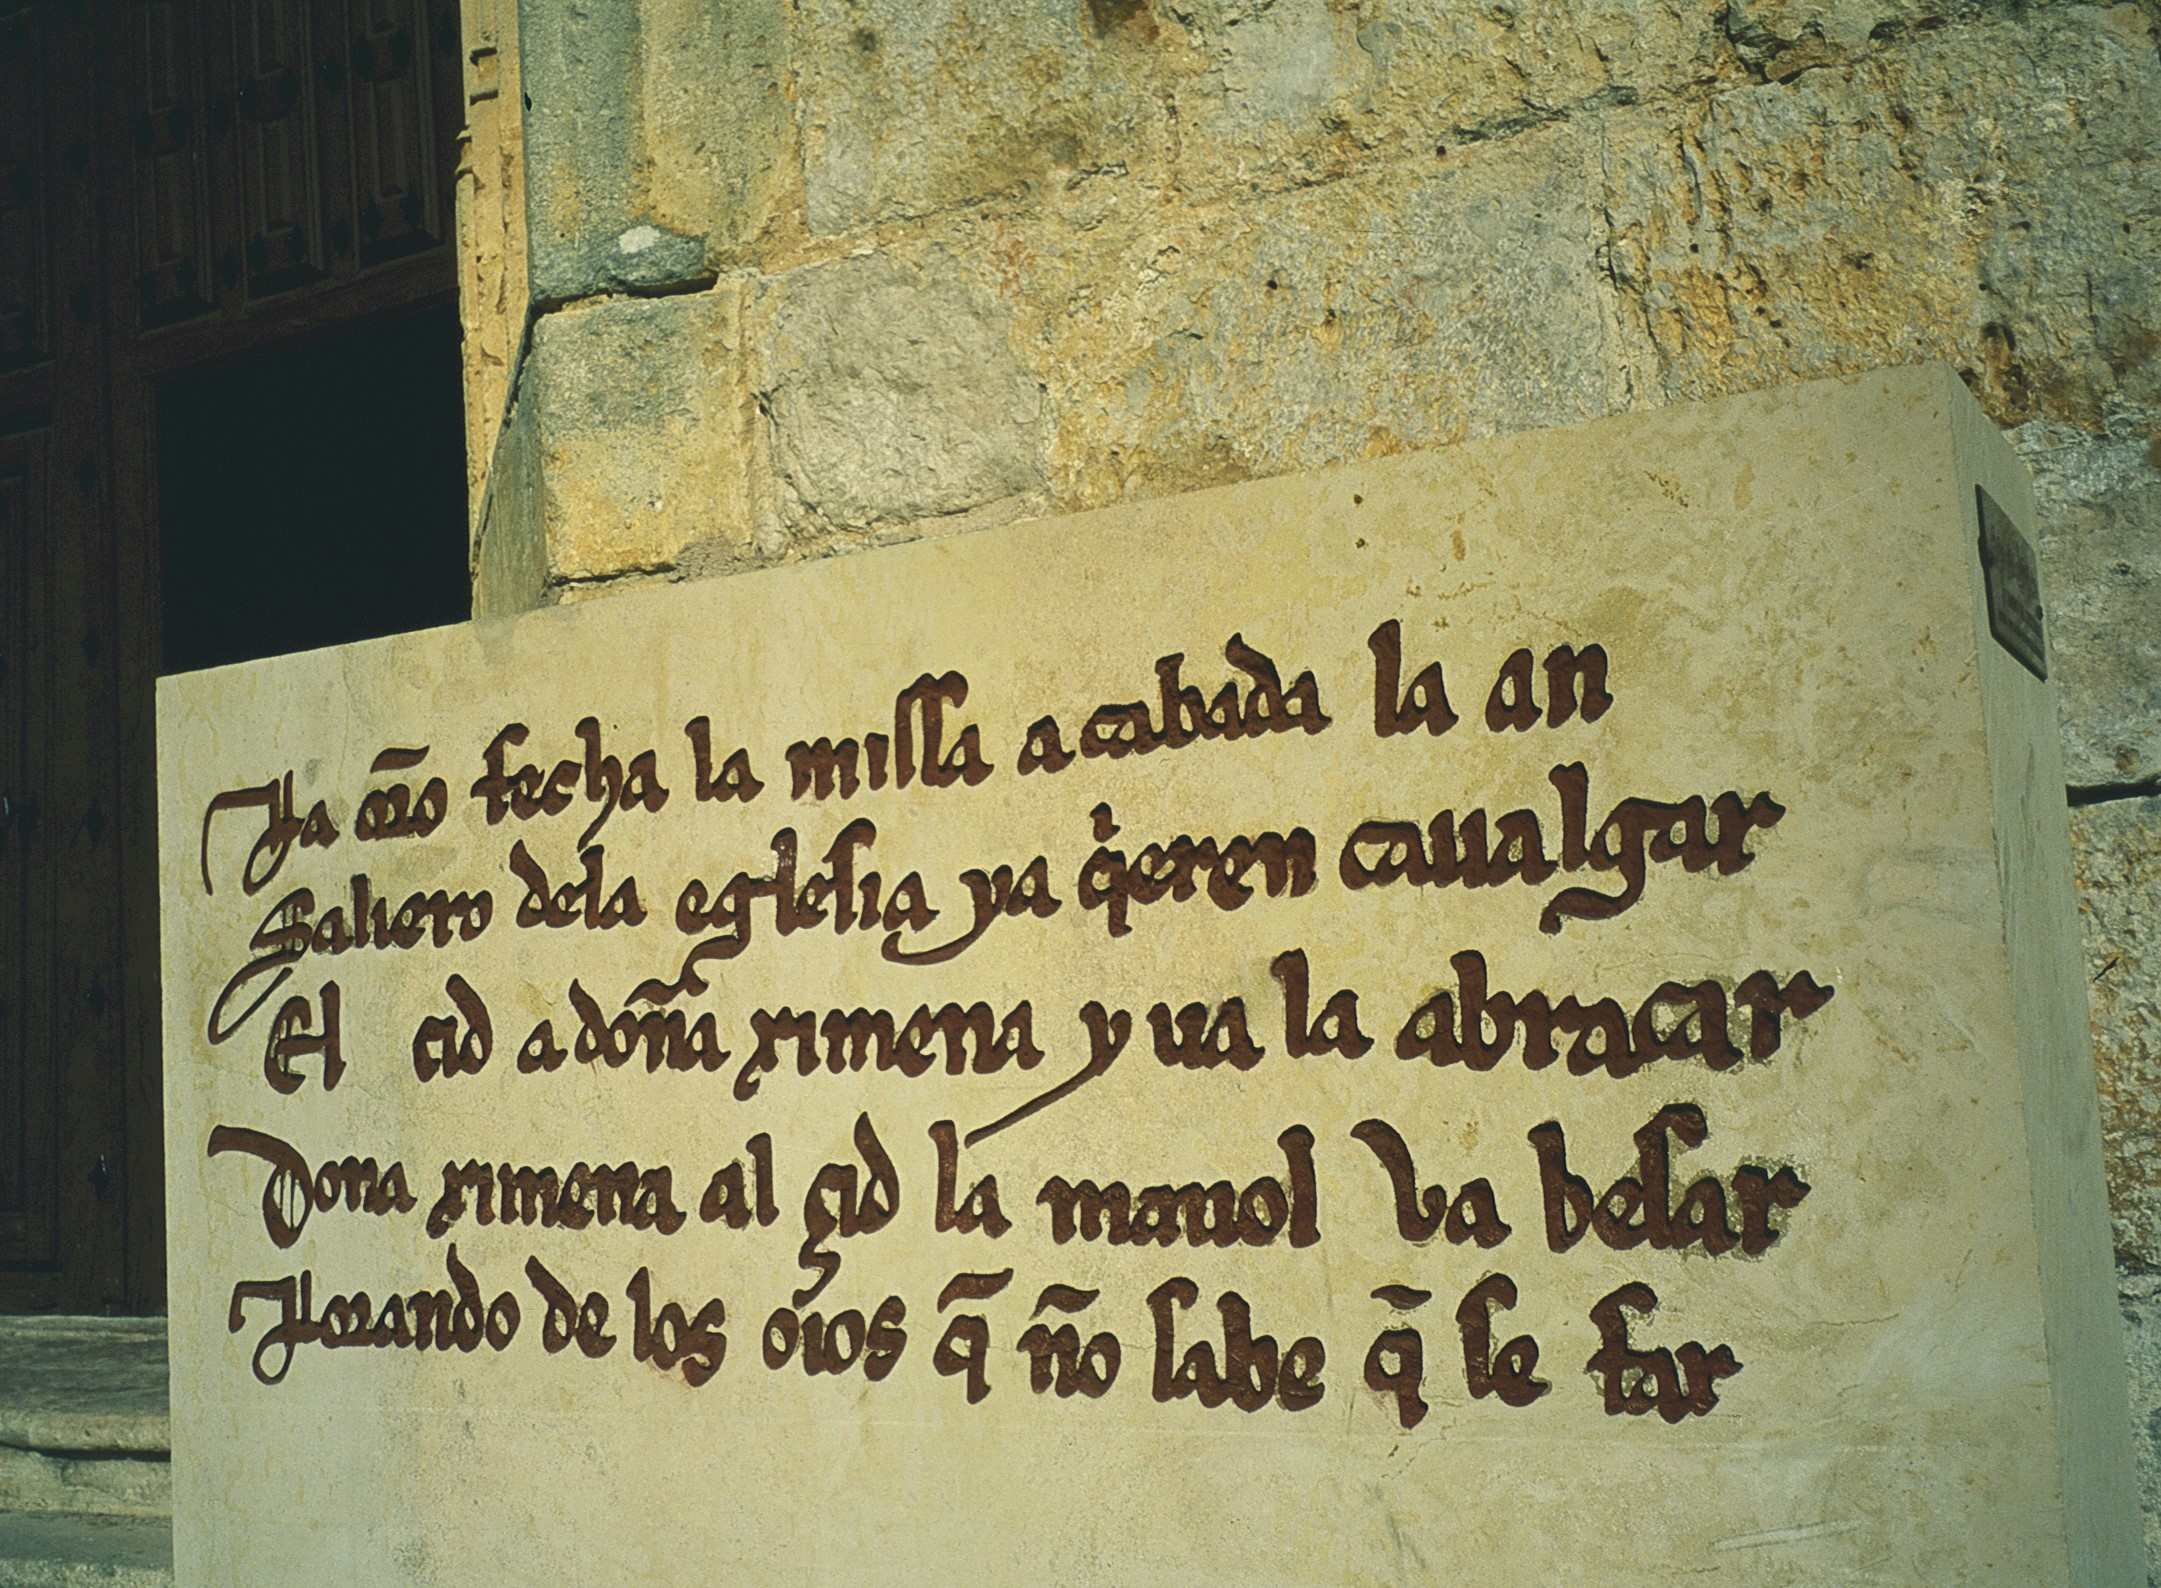 La orõ fecha la missa acabada la an
Saliero dela eglesia ya qͥeren caualgar
El cid a doña ximena yua la abracar
Dona ximena al çid la manol va besar
Lorando de los oios q̃ ño sabe q̃ se far